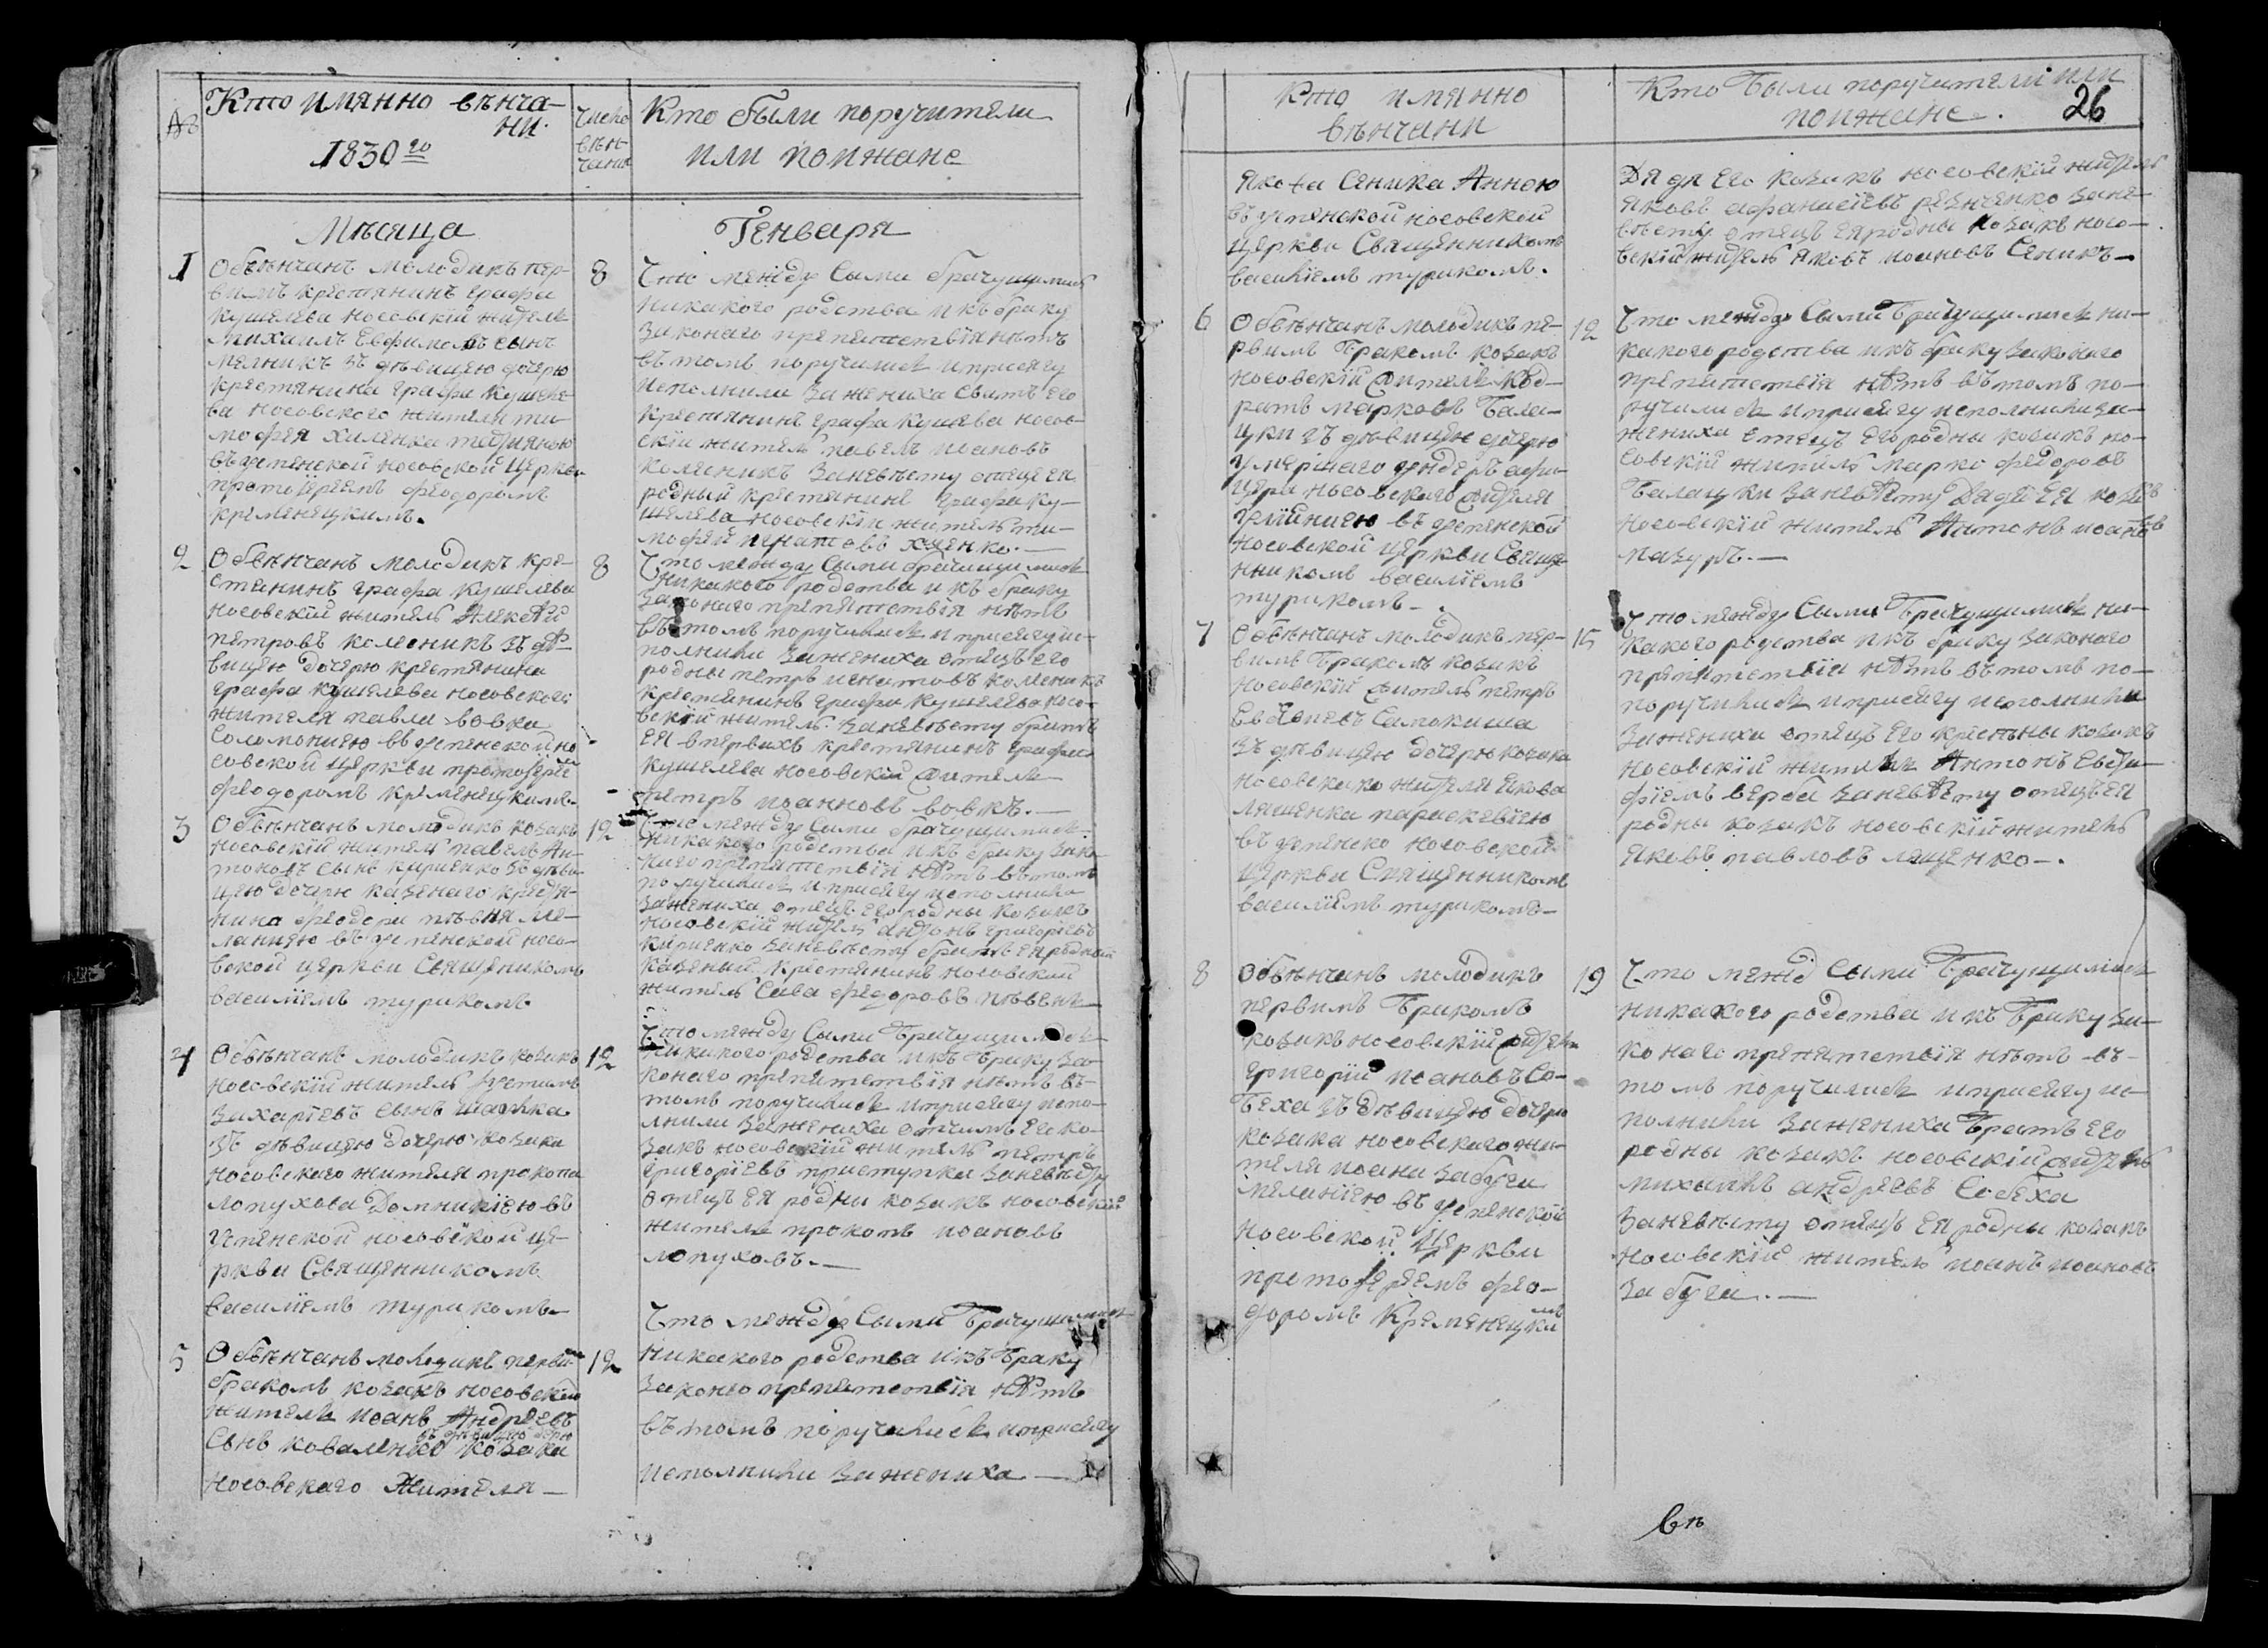 №
Кто имянно вѣнча-
ни.
1830го
Число
вѣн-
чания
Кто были поручители
или поижане
Мѣсяца
Генваря
1
Обвѣнчанъ молодикъ пер-
вимъ крестянинъ графа
Кушелева носовский житель
Михаилъ Евфимовъ сынъ
мелникъ зъ дѣвицею дочерю
крестянина графа Кушеле-
ва носовского жителя ти-
мофея татияною
въ успенской носовской церкви
протоіереемъ феодоромъ
кременецкимъ.
8
Что между Сыми брачущимись
никакого родства и къ браку
законаго препятствія нѣтъ
въ томъ поручились и присягу
исполнили за жениха его
крестянинъ графа кушева носов-
скій житель павелъ иоановъ
колесникъ за невѣсту отецъ ея
родный крестянинъ графа ку-
шелева носовскій житель ти-
мофей игнатовъ
2
Обвѣнчанъ молодикъ кре-
стянинъ графа кушелева
носовский житель Алексѣй
петровъ колесникъ зъ дѣ-
вицею дочерю крестянина
графа кушелева носовского
жителя павла вовка
Соломониею въ успенской но-
совской церкви протоіерее
феодоромъ кременецкимъ
8
Что между Сыми брачущимись
никакого родства и къ браку
законаго препятствія нѣтъ
въ томъ поручились и присягу ис-
полнили за жениха отецъ его
родны петръ игнатовъ колесникъ
крестянинъ графа кушелева носо-
вскій житель. за невѣсту братъ
ея въ первихъ крестянинъ графа
кушелева носовскій житель
петръ иоанновъ вовкъ.—
3
Обвѣнчанъ молодикъ козакъ
носовский житель павелъ Ан-
тоновъ сынъ кириенко зъ дѣви-
цею дочерю казенаго крестя-
нина феодора пѣвня ме-
ланиею въ успенской носо-
вской церкви Священикомъ
василіемъ турикомъ
12
Что между Сыми брачущимись
никакого родства и къ браку зако-
наго препятствія нѣтъ въ томъ
поручились и присягу исполнили
за жениха отецъ его родны козакъ
носовскій житель антонъ григоріевъ
кириенко за невѣсту братъ ея родный
казеный крестянинъ носовский
житель Сава федоровъ пѣвень
4
Обвѣнчанъ молодикъ козакъ
носовскій житель устимъ
захаріевъ сынъ
зъ дѣвицею дочерю козака
носовского жителя прокопа
лопухова Домникіею въ
Успенской носовской це-
ркви Священникомъ
василіемъ турикомъ—
12
Что между Сыми брачущимись
никакого родства и къ браку за-
конаго препятствія нѣтъ въ-
томъ поручились и присягу испо-
лнили за жениха отчимъ его ко-
закъ носовскій житель петръ
григоріевъ приступка за невѣсту
отецъ ея родны козакъ носовскій
житель прокопъ иоановъ
лопуховъ.—
5
Обвѣнчанъ молодикъ первим
бракомъ козакъ носовскій
житель иоанъ Андреевъ
зъ дѣвицею дочерю
Сынъ коваленко козака
носовскаго Жителя—
12
Что между Сыми Брачущимись
никакого родства и къ Браку
законго препятствія нѣтъ
въ томъ поручились и присягу
исполнили за жениха —
Кто имянно
вѣнчани
Кто Были поручители или
поижане.
26
Якова Сеника Анною
въ успенской носовской
церкви Священникомъ
василіемъ турикомъ.
Дядя его козакъ носовскій житель
Яковъ афанасіевъ за не-
вѣсту отецъ ея родны козакъ носо-
вскій житель Яковъ иоановъ Сеникъ—
6
Обвѣнчанъ молодикъ пе-
рвимъ Бракомъ козакъ
носовскій житель
Марковъ Бала-
цки зъ дѣвицею дочерю
умершаго ундеръ афи-
цера носовского жителя
въ успенской
носовской церкви Свяще-
нникомъ василіемъ
турикомъ—.
12
Что между Сыми Брачущимись ни-
какого родства и къ браку законого
препятствія нѣтъ въ томъ по-
ручились и присягу исполнили за-
жениха отецъ его родны козакъ но-
совскій житель Марко федоровъ
Балацки за невѣсту Дядя ея козакъ
носовскій житель Антонъ иоановъ
мазуръ.—
7
Обвѣнчанъ молодикъ пер-
вимъ Бракомъ козакъ
носовскій житель петръ
Самокиша
зъ дѣвицею дочерю козака
носовскаго жителя якова
лященка параскевіею
въ успенско носовской
церкви Священникомъ
василіемъ турикомъ—
15
Что между Сыми Брачущимись ни-
какого родства и къ браку законаго
препятствія нѣтъ въ томъ по-
поручились и присягу исполнили
за жениха отецъ его крестны козакъ
носовскій житель Антонъ Евфи-
фіемъ верба за невѣсту отецъ ея
родны козакъ носовскій житель
Яковъ павловъ лященко—.
8
Обвѣнчанъ молодикъ
первимъ Бракомъ
козакъ носовскій житель
григорій иоановъ Со-
беха зъ дѣвицею дочерю
козака носовскаго жи-
теля иоана забуги
меланіею въ успенскои
носовской Церкви
протоіереемъ фео-
доромъ Кременецки
мъ
19
Что межд Сыми Брачущимись
никакого родства и къ Браку за-
конаго препятствія нѣтъ въ-
томъ поручились и присягу ис-
полнили за жениха Братъ его
родны козакъ носовскій житель
михаилъ андреевъ Собеха
за невѣсту отецъ ея родны козакъ
носовскій житель иоанъ иоановъ
забуга.—
въ